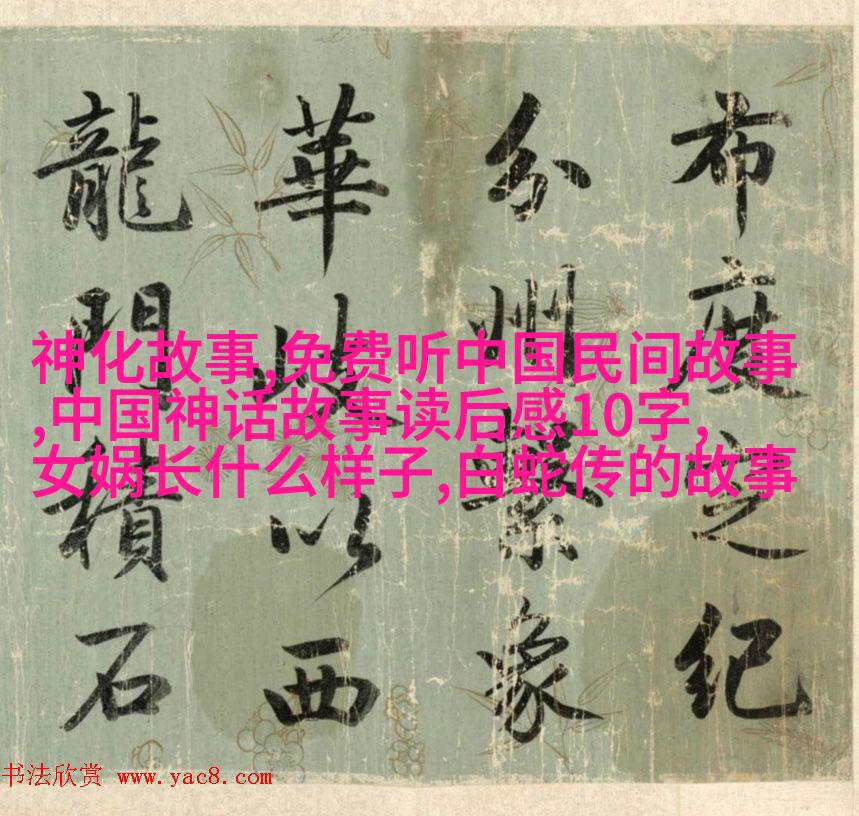 布度之紀
分州繫象
華此以西
龍門積石
神化故事,免费听中国民间故事
,中国神话故事读后感10字,
女娲长什么样子,白蛇传的故事
书法欣赏 www.yac8.com